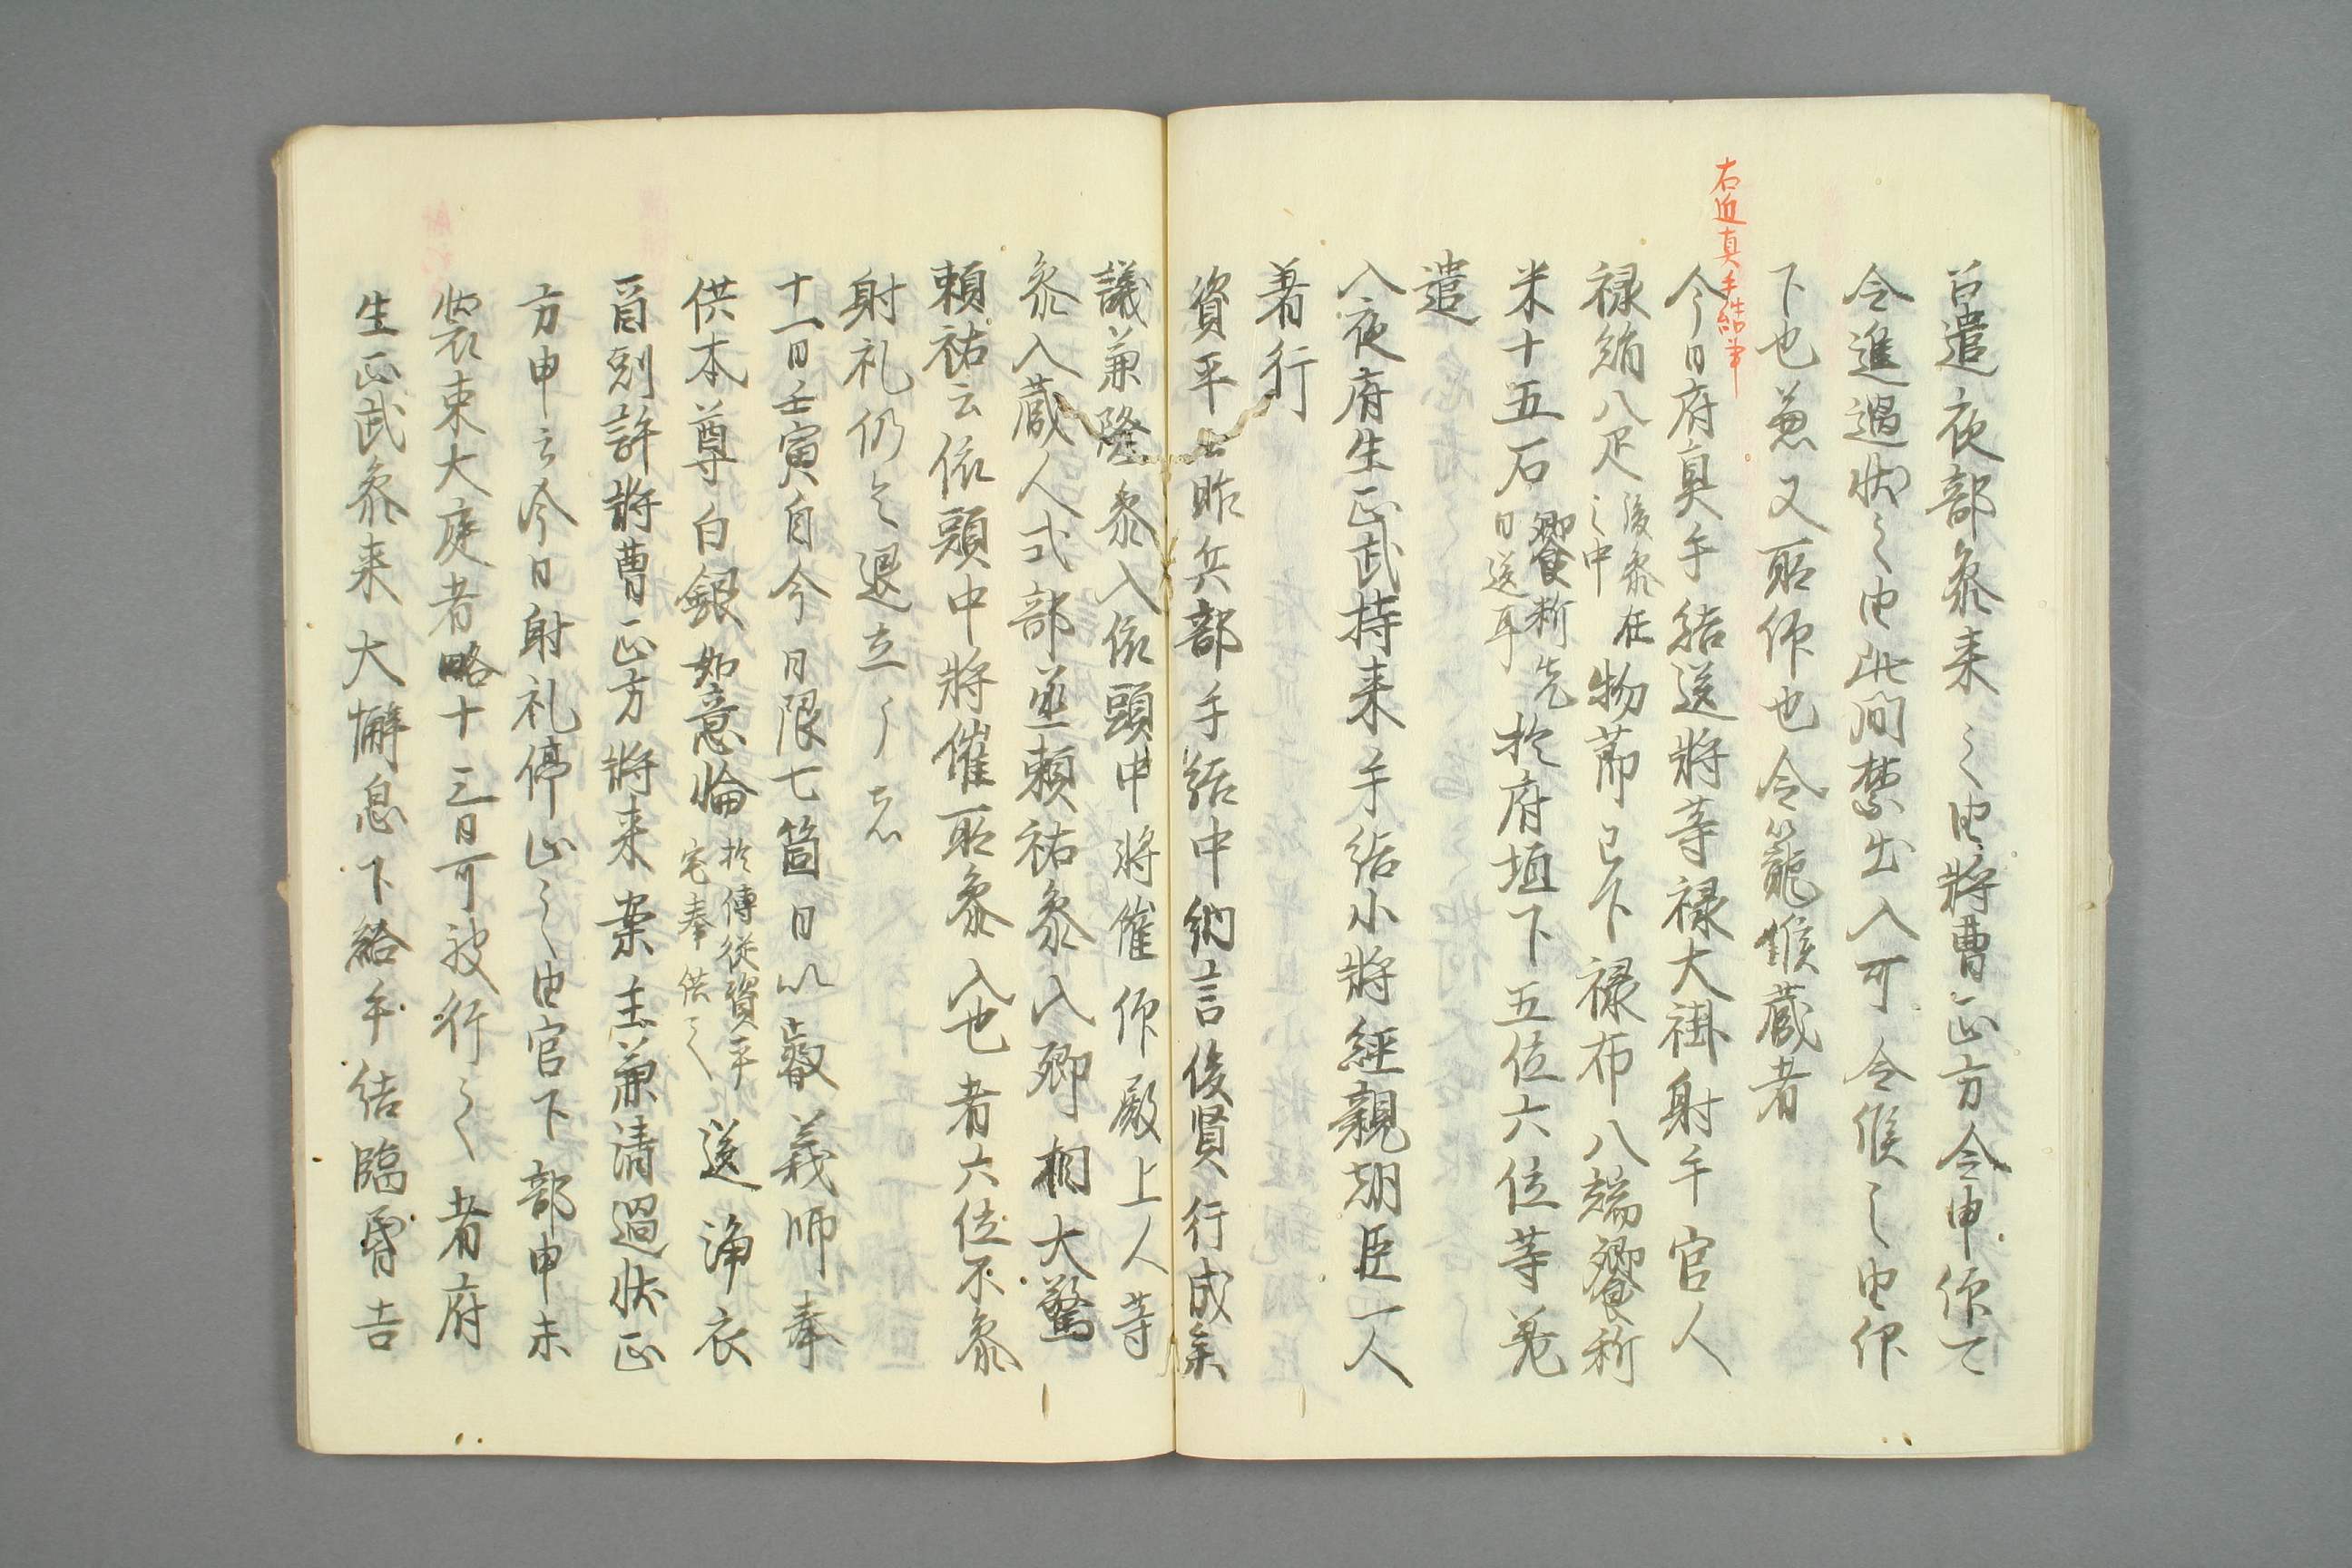 右近真手結事
召遣夜部参来之由将曹正方令申仰可
令進過状之由此間禁出入可令候之由仰
下也兼又所仰也令籠候蔵者
今日府真手結送将等禄大褂射手官人
禄絹八疋後参在
之中物節已下禄布八端饗料
米十五石饗料先
日送耳於府垣下五位六位等差
遣
入夜府生正武持来手結小将経親朝臣一人
着行
資平云昨兵部手結中納言俊賢行成参
議兼隆参入依頭中将催仰殿上人等
参入蔵人式部丞頼祐参入卿相大驚
頼祐云依頭中将催所参入也者六位不参
射礼仍乍退立了者
十一日壬寅自今日限七箇日以叡義師奉
供本尊白銀如意輪於傳従資平
宅奉供之送浄衣
酉剋許将曹正方将来案主兼清過状正
方申云今日射礼停止之由官下部申未
装束大庭者略十三日可被行之者府
生正武参来大懈怠下給手結臨昏吉